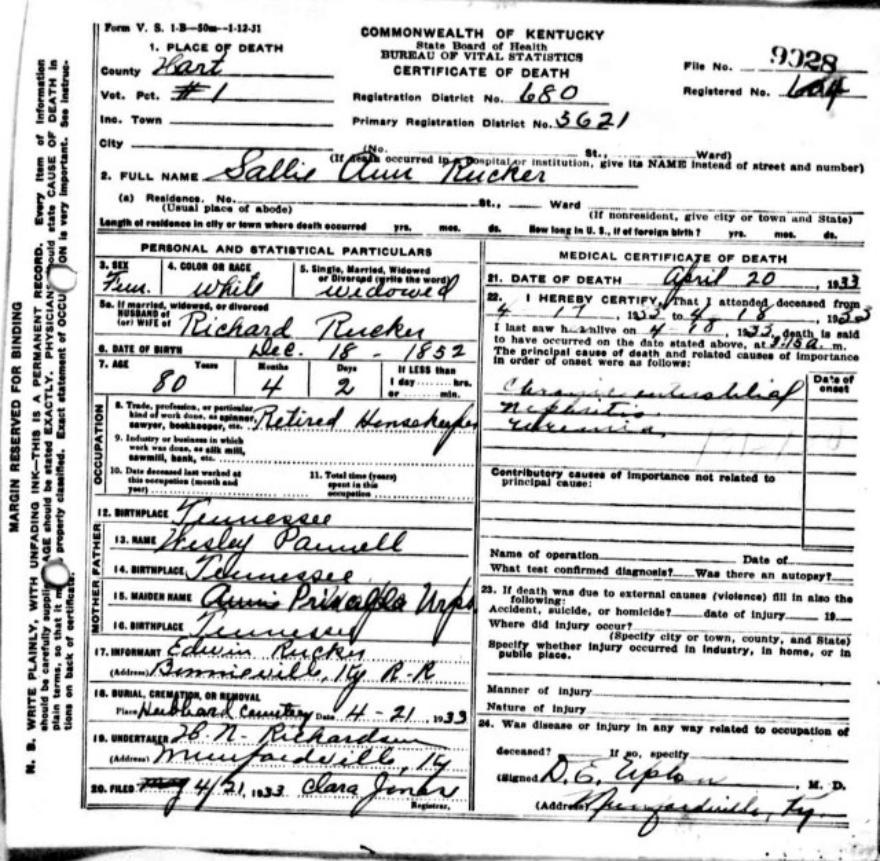 Form V. S. 1-B—50m—1-12-31
COMMONWEALTH OF KENTUCKY
State Board of Health
BUREAU OF VITAL STATISTICS
CERTIFICATE OF DEATH
File No. 9028
Registered No.
1. PLACE OF DEATH
County Hart
Vot. Pct. #1
Registration District No. 680
Inc. Town
Primary Registration District No. 3621
City
(No. St., Ward)
(If death occurred in a hospital or institution, give its NAME instead of street and number)
2. FULL NAME Sallie Ann Rucker
(a) Residence. No. St., Ward
(Usual place of abode) (If nonresident, give city or town and State)
Length of residence in city or town where death occurred yrs. mos. ds. How long in U. S., if of foreign birth? yrs. mos. ds.
PERSONAL AND STATISTICAL PARTICULARS
3. SEX Fem. 4. COLOR OR RACE white 5. Single, Married, Widowed or Divorced (write the word) widowed
5a. If married, widowed, or divorced
HUSBAND of
(or) WIFE of Richard Rucker
6. DATE OF BIRTH Dec. 18 - 1852
7. AGE Years Months Days If LESS than
80 4 2 1 day hrs.
or min.
OCCUPATION
8. Trade, profession, or particular
kind of work done, as spinner,
sawyer, bookkeeper, etc. Retired Housekeeper
9. Industry or business in which
work was done, as silk mill,
sawmill, bank, etc.
10. Date deceased last worked at
this occupation (month and
year)
11. Total time (years)
spent in this
occupation
12. BIRTHPLACE Tennessee
FATHER
13. NAME Wesley Pannell
14. BIRTHPLACE Tennessee
MOTHER
15. MAIDEN NAME
16. BIRTHPLACE Tennessee
17. INFORMANT Edwin Rucker
(Address) Bonnieville, Ky R-R
18. BURIAL, CREMATION, OR REMOVAL
Place Hubbard Cemetery Date 4-21, 1933
19. UNDERTAKER H. N. Richardson
(Address) Munfordville, Ky
20. FILED 4/21, 1933 Clara Jones
Registrar.
MEDICAL CERTIFICATE OF DEATH
21. DATE OF DEATH April 20, 1933
22. I HEREBY CERTIFY, That I attended deceased from
4 - 17, 1933 to 4 - 18, 1933
I last saw h alive on 4-18, 1933, death is said
to have occurred on the date stated above, at 9:15 a. m.
The principal cause of death and related causes of importance
in order of onset were as follows:
Date of onset
Chronic interstitial
Nephritis
Uremia
Contributory causes of importance not related to
principal cause:
Name of operation Date of
What test confirmed diagnosis? Was there an autopsy?
23. If death was due to external causes (violence) fill in also the
following:
Accident, suicide, or homicide? date of injury 19
Where did injury occur?
(Specify city or town, county, and State)
Specify whether injury occurred in industry, in home, or in
public place.
Manner of injury
Nature of injury
24. Was disease or injury in any way related to occupation of
deceased? If so, specify
(Signed) D. E. Upton, M. D.
(Address) Munfordville, Ky.
MARGIN RESERVED FOR BINDING
N. B. WRITE PLAINLY, WITH UNFADING INK—THIS IS A PERMANENT RECORD. Every item of information
should be carefully AGE should be stated EXACTLY. should state CAUSE OF DEATH in
plain terms, so that it properly classified. Exact statement of is very important. See instruc-
tions on back of certificate.